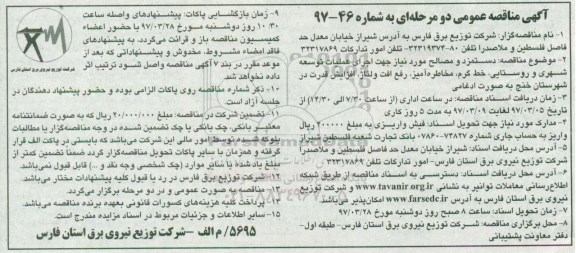 آگهی مناقصه عمومی دو مرحله‌ای به شماره ۴۶-۹۷
۱- نام مناقصه‌گزار: شرکت توزیع برق فارس به آدرس شیراز خیابان معدل حد
فاصل فلسطین و ملاصدرا تلفن ۸۰-۳۲۳۱۹۳۷۳- تلفن امور تدارکات ۳۲۳۱۷۸۶۹
۲- موضوع مناقصه: دستمزد و مصالح مورد نیاز جهت اجرای عملیات توسعه
شهری و روستایی، خط گرم، مخاطره‌آمیز، رفع افت ولتاژ، افزایش قدرت در
شهرستان خنج به صورت ادغامی
۳- زمان دریافت اسناد مناقصه: در ساعت اداری (از ساعت ۷/۳۰ الی ۱۴/۳۰) از
تاریخ ۹۷/۰۳/۰۵ لغایت ۹۷/۰۳/۰۹ به مدت ۵ روز کاری
۴- مدارک مورد نیاز جهت تحویل اسناد: فیش واریزی به مبلغ ۲۰۰۰۰۰ ریال
واریز به حساب جاری شماره ۰۷۸۶۰۰۷۳۸۴۷ بانک تجارت شعبه فلسطین شیراز
۵- آدرس محل دریافت اسناد: شیراز خیابان معدل حد فاصل فلسطین و ملاصدرا
شرکت توزیع نیروی برق استان فارس- امور تدارکات تلفن ۳۲۳۱۷۸۶۹
۶- آدرس محل دریافت اسناد: دسترسی به اسناد مناقصه از طریق شبکه
اطلاع‌رسانی معاملات توانیر به نشانی www.tavanir.org.ir و شرکت توزیع
نیروی برق استان فارس به آدرس www.farsedc.ir امکان‌پذیر می‌باشد.
۷- زمان تحویل اسناد: ساعت ۸ صبح روز دوشنبه مورخ ۹۷/۰۳/۲۸
۸- محل برگزاری مناقصه: شرکت توزیع نیروی برق استان فارس- طبقه اول-
دفتر معاونت پشتیبانی
۹- زمان بازگشایی پاکات: پیشنهادهای واصله ساعت
۱۰:۳۰ روز دوشنبه مورخ ۹۷/۰۳/۲۸ با حضور اعضاء
کمیسیون مناقصه باز و قرائت می‌گردد. به پیشنهادهای
فاقد امضاء مشروط، مخدوش و پیشنهاداتی که بعد از
موعد مقرر در بند ۷ آگهی مناقصه واصل شود ترتیب اثر
داده نخواهد شد.
۱۰- ذکر شماره مناقصه روی پاکات الزامی بوده و حضور پیشنهاد دهندگان در
جلسه آزاد است.
۱۱- تضمین شرکت در مناقصه: مبلغ ۲۰/۰۰۰/۰۰۰ ریال که به صورت ضمانتنامه
معتبر بانکی، چک بانکی یا چک تضمین شده در وجه مناقصه‌گزار یا مطالبات
بلوکه شده توسط امور مالی این شرکت می‌باشد که بایستی در پاکت الف قرار
گرفته و همزمان با سایر پاکات تحویل مناقصه‌گزار گردد ضمنا تضمین کمتر از
مبلغ یاد شده یا سایر موارد (چک شخصی وجه نقد و ...) قابل قبول نمی‌باشد.
۱۲- شرکت توزیع برق فارس در رد یا قبول کلیه پیشنهادات مختار می‌باشد.
۱۳- مناقصه به صورت عمومی و در دو مرحله برگزار می‌گردد.
پرداخت کلیه هزینه‌های کسورات قانونی بعهده برنده مناقصه می‌باشد.
۱۵- سایر اطلاعات و جزئیات مربوط در اسناد مزایده مندرج است.
۵۶۹۵/ م الف -شرکت توزیع نیروی برق استان فارس
شرکت توزیع نیروی برق استان فارس